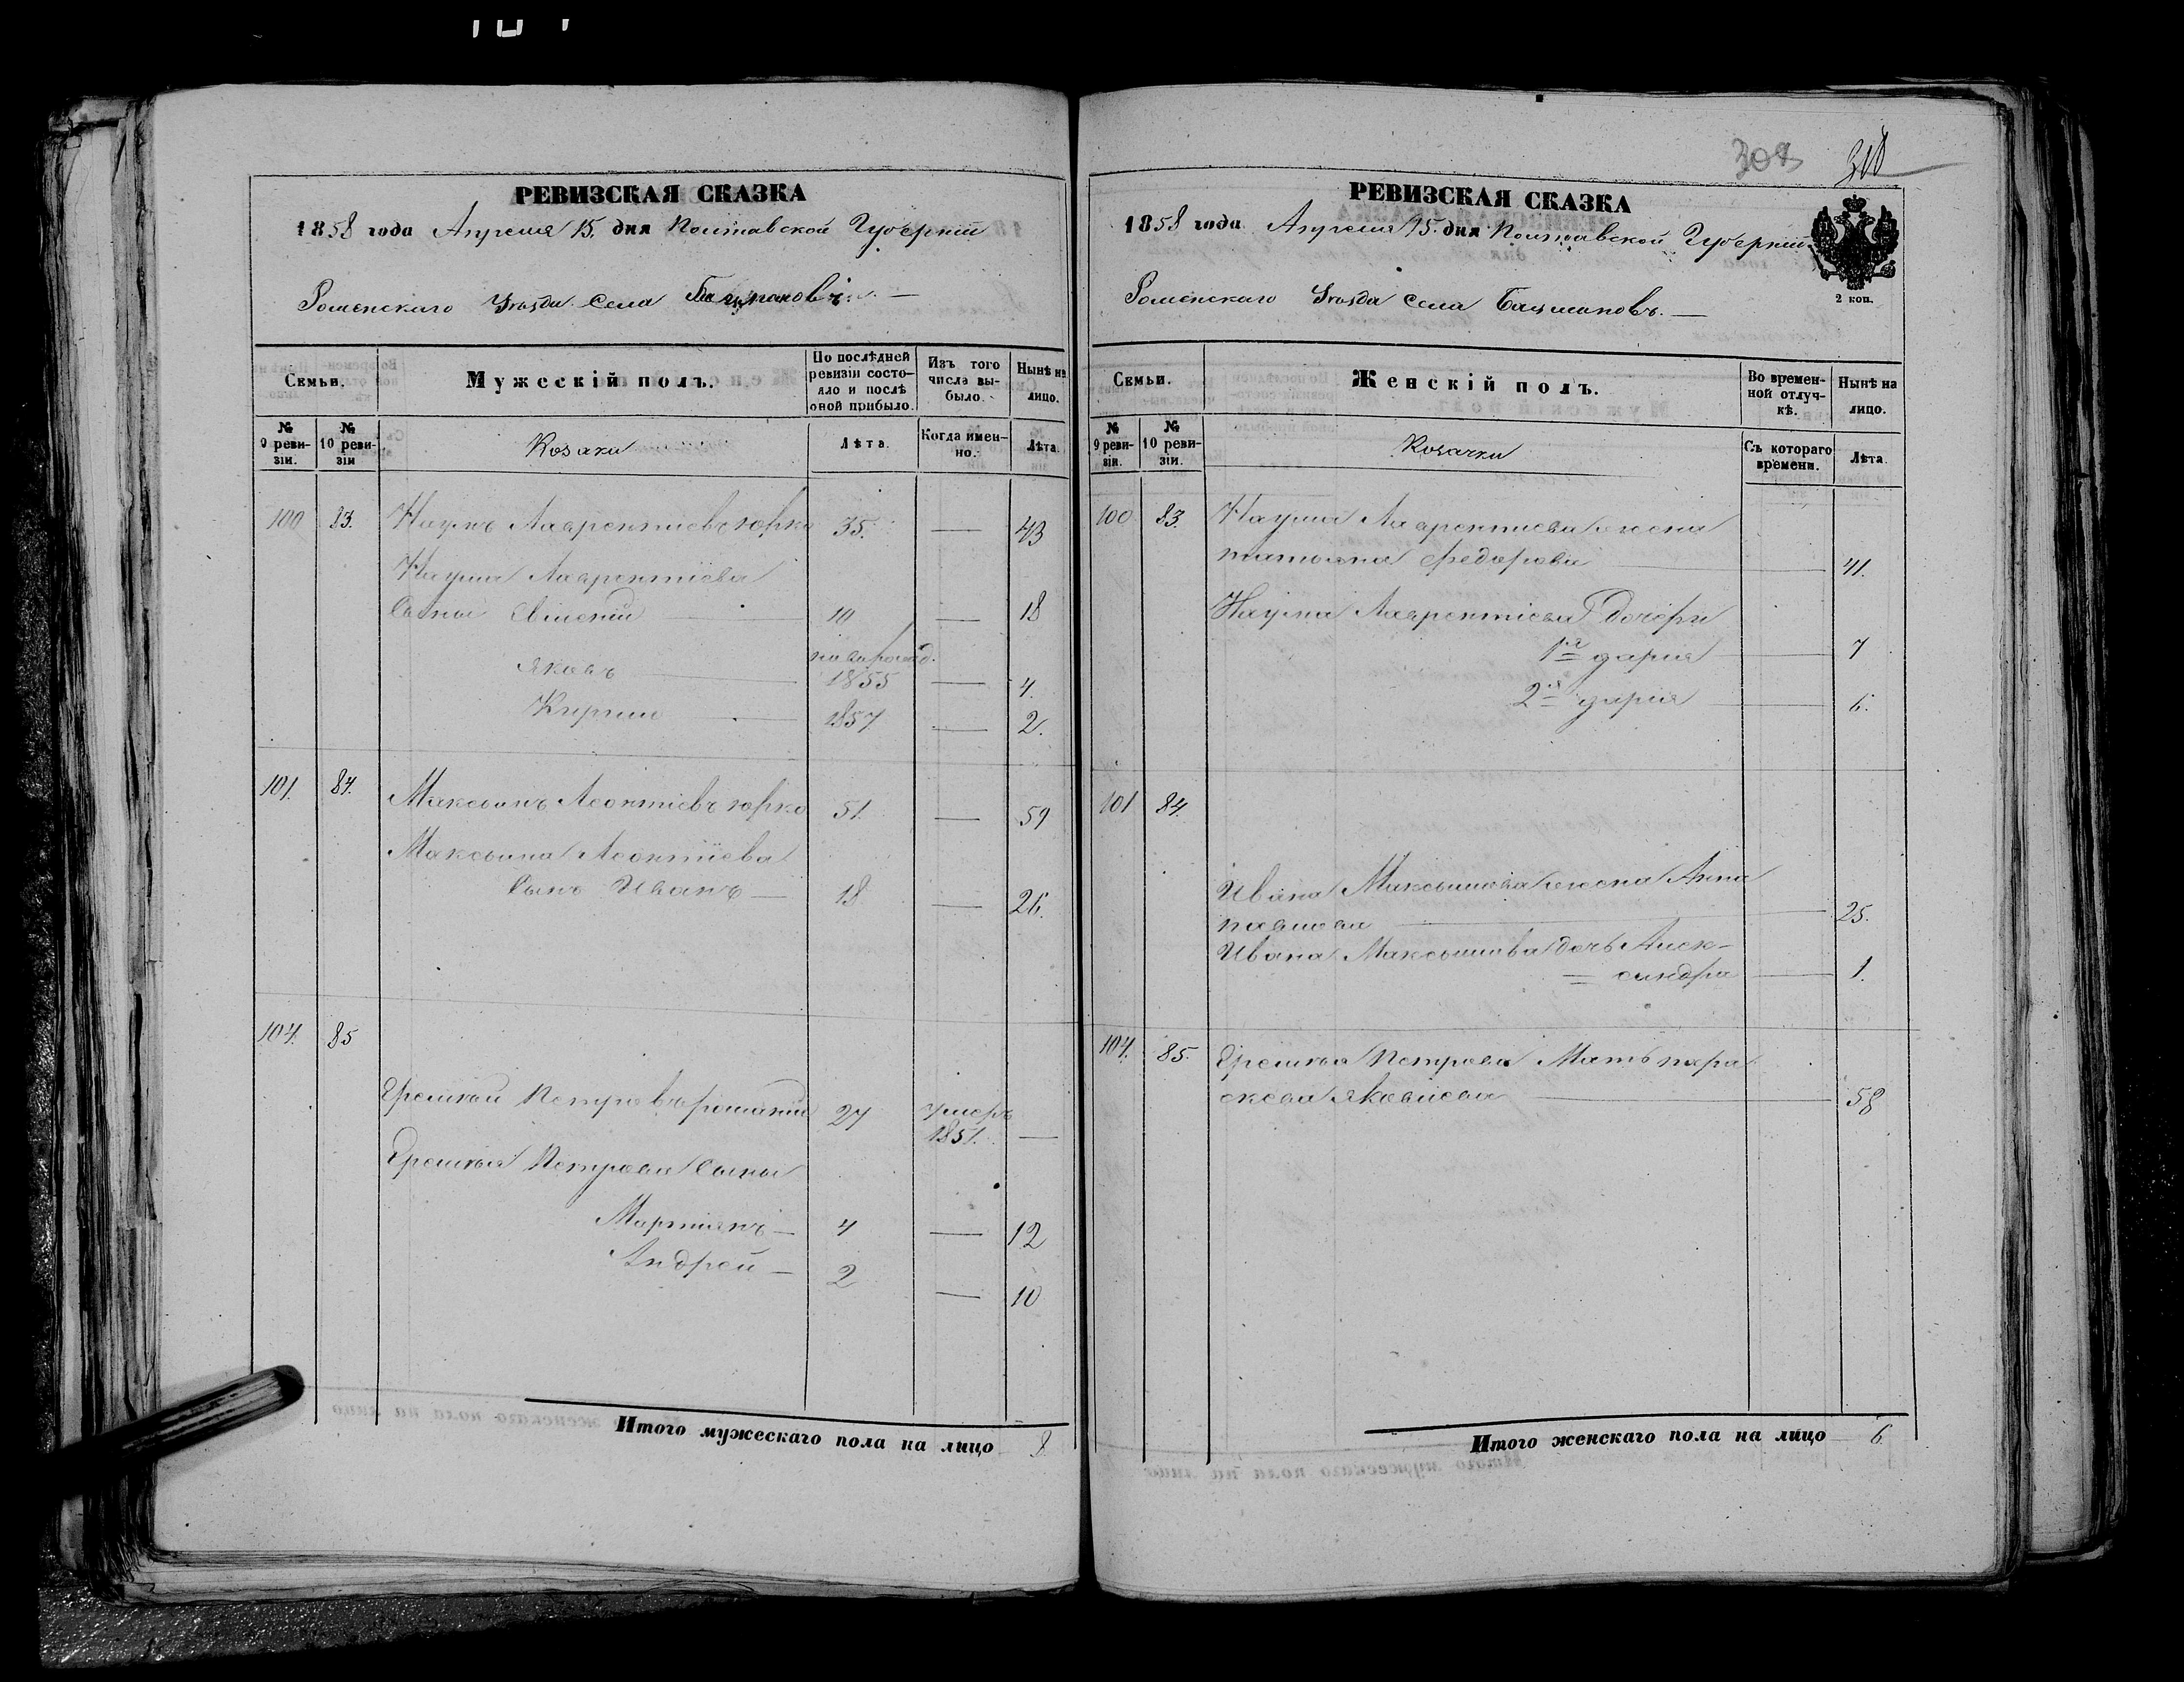 308
РЕВИЗСКАЯ СКАЗКА
1858 года Апреля 15. дня Полтавской Губерніи
Роменскаго Уѣзда Села Бацмановъ.
Семьи.
Мужескій полъ.
По послѣдней ревизіи состояло и послѣ оной прибыло.
Изъ того числа выбыло.
Нынѣ на лицо.
№ 9 ревизіи.
№ 10 ревизіи
Козаки
Лѣта.
Когда именно.
Лѣта.
100 83. Наумъ Лаврентіевъ Юрко 35. — 43
Наума Лаврентіева
Сыны Евменій 10 — 18
новорожд.
Яковъ 1855 — 4.
Кирило 1857 — 2.
101. 84. Максимъ Леонтіевъ Юрко 51. — 59
Максима Леонтіева
Сынъ Иванъ — 18 — 26.
104. 85
Еремѣй Петровъ 27 умеръ
1851. —
Еремѣя Петрова Сыны
Мартинъ — 4 — 12
Андрей — 2 — 10
Итого мужескаго пола на лицо 8
РЕВИЗСКАЯ СКАЗКА
1858 года Апреля 15. дня Полтавской Губерніи
2 коп.
Роменскаго Уѣзда Села Бацмановъ.
Семьи.
Женскій полъ.
Во временной отлучкѣ.
Нынѣ на лицо.
№ 9 ревизіи.
№ 10 ревизіи.
Козачки
Съ котораго времени.
Лѣта
100 83. Наума Лаврентіева жена
татьяна федорова 41.
Наума Лаврентіева дочери
1я дарія 7
2я дарія 6.
101 84.
Ивана Максимова жена Анна
павлова 25.
Ивана Максимова дочь Алек-
= сандра 1.
104. 85. Еремѣя Петрова Мать пара
скева Яковлева 58
Итого женскаго пола на лицо 6